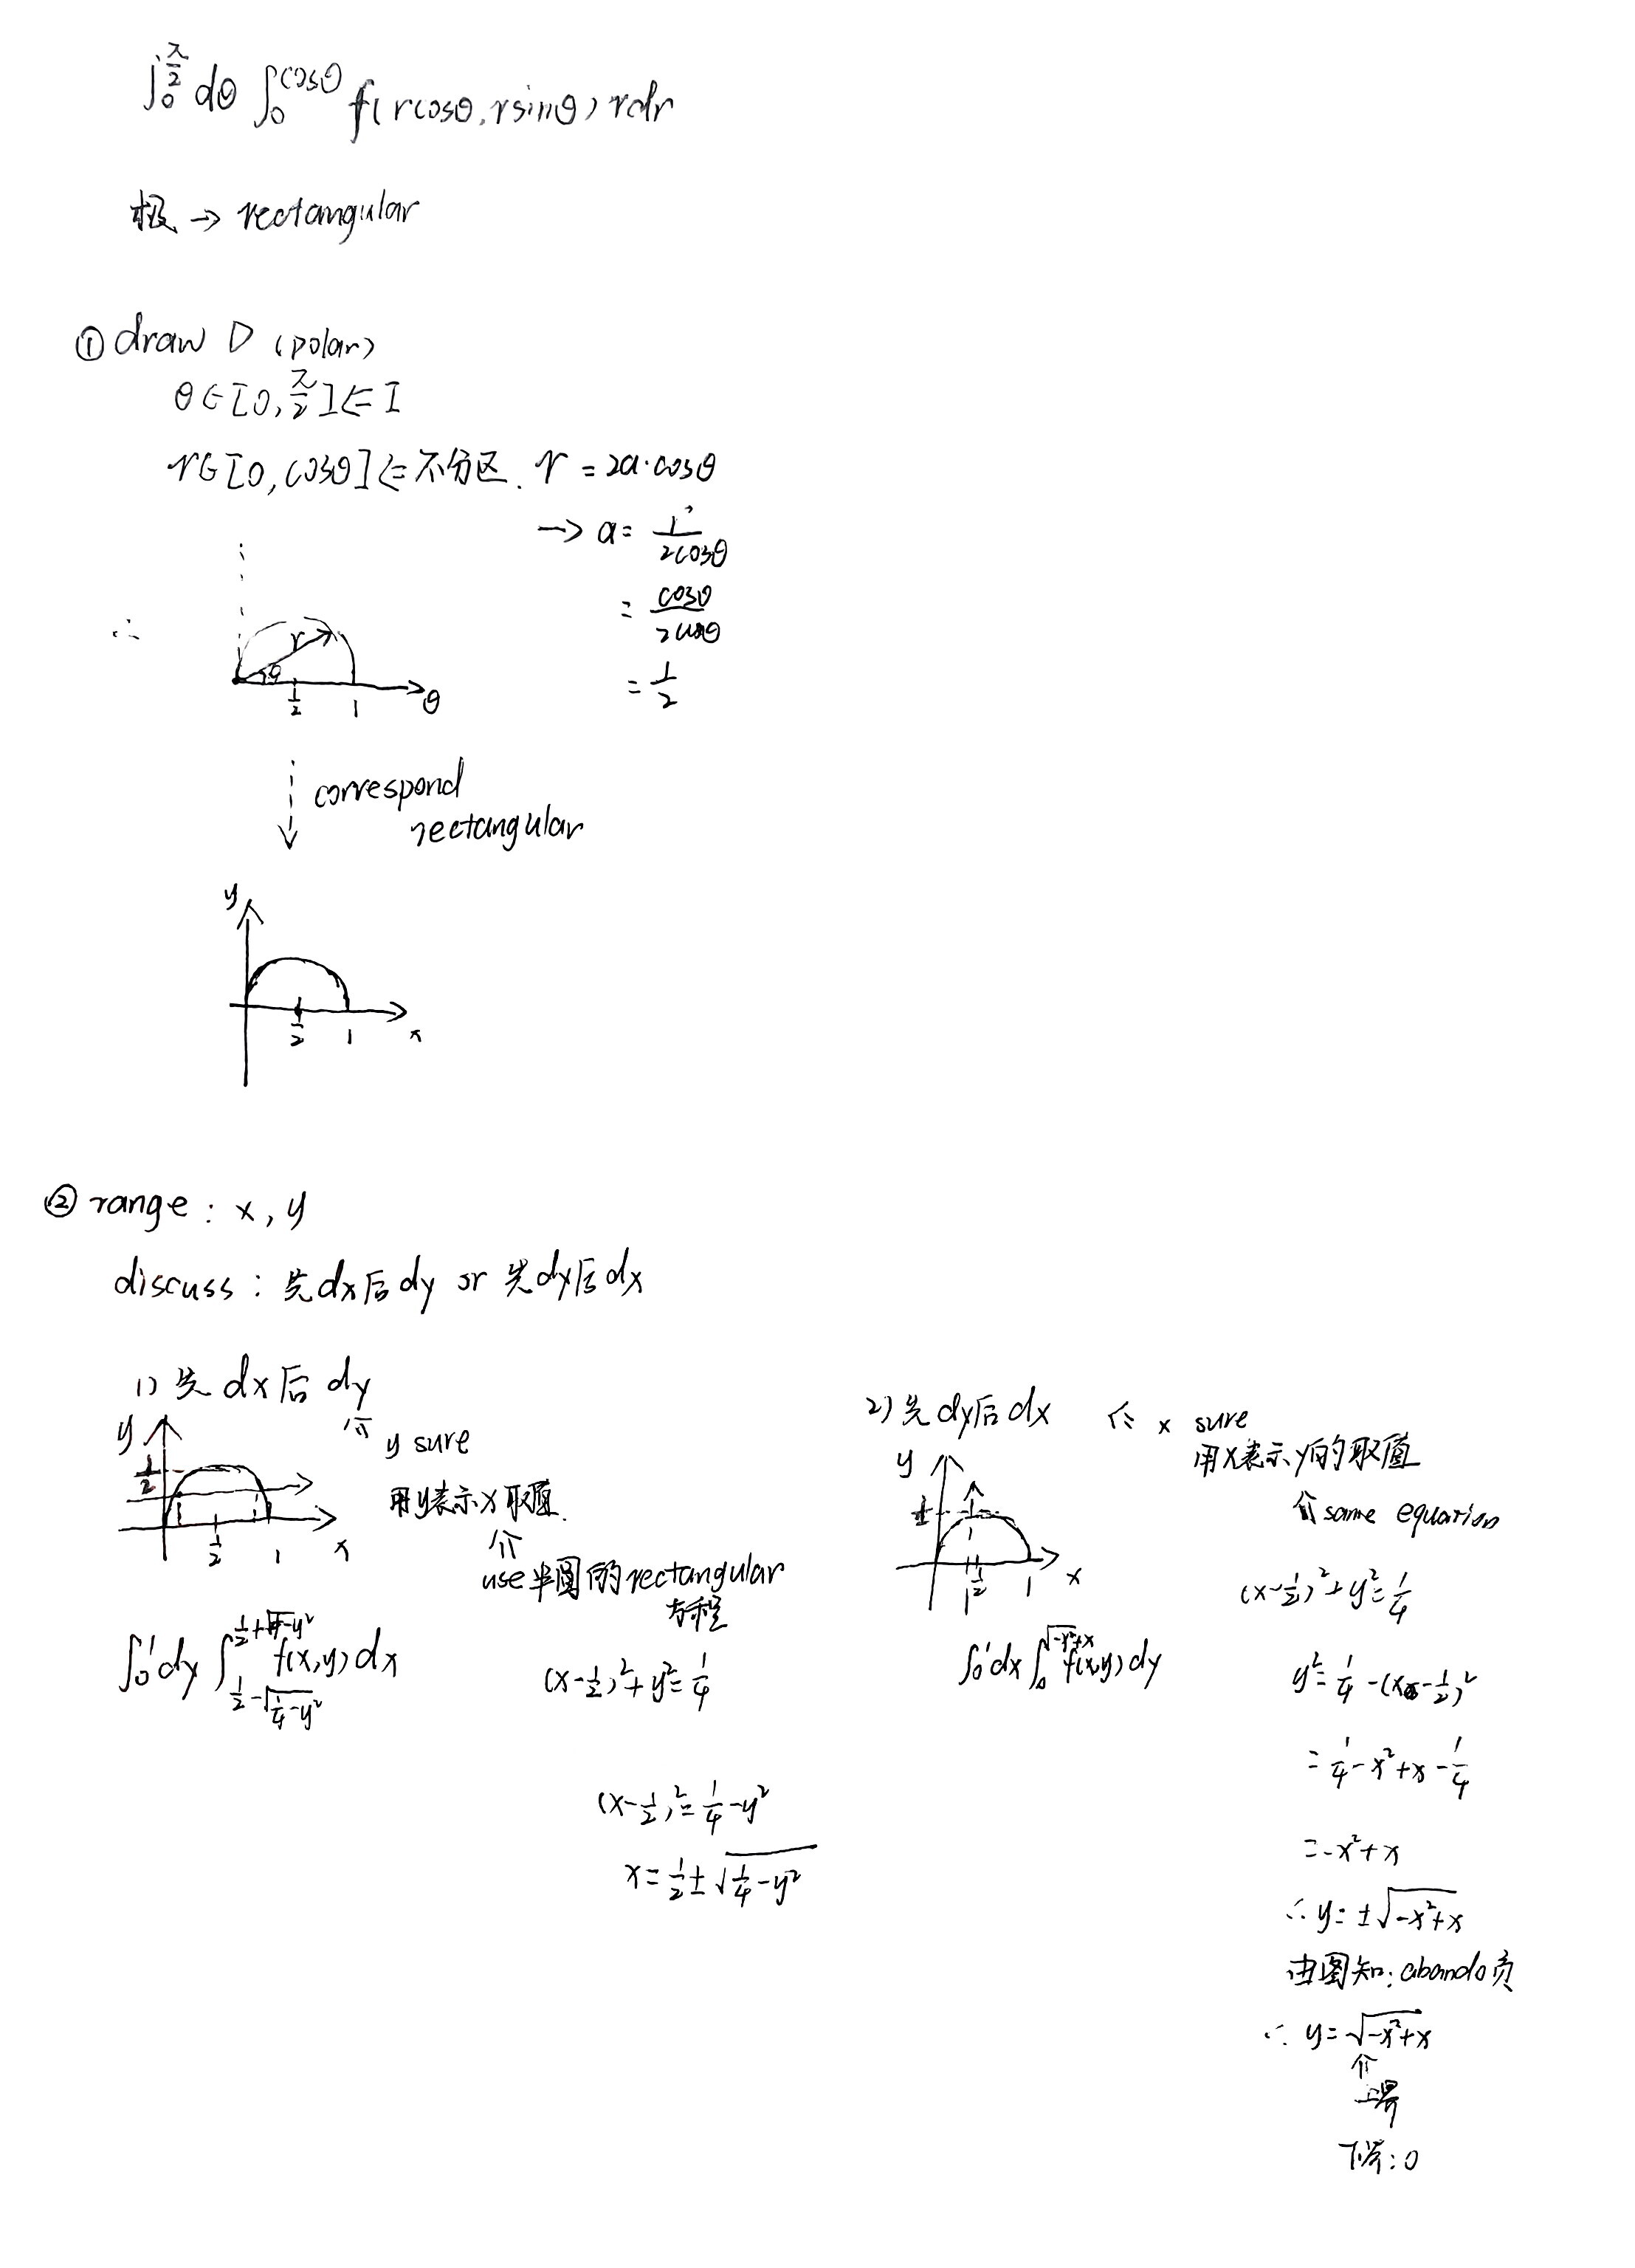 ∫₀^(π/2) dθ ∫₀^(cosθ) f(rcosθ, rsinθ) rdr
极 → rectangular
① draw D (polar)
θ∈[0, π/2] ⇐ I
r∈[0, cosθ] ⇐ 不分区. r = 2a·cosθ
→ a = r/(2cosθ)
= cosθ/(2cosθ)
= 1/2
∴
r
θ
1/2 1 θ
correspond
rectangular
y
1/2 1 x
② range : x, y
discuss : 先dx后dy or 先dy后dx
1) 先dx后dy
⇑ y sure
用y表示x取值.
⇑
use半圆的rectangular
方程
y
1/2
1/2 1 x
∫₀¹dy ∫_(1/2-√(1/4-y²))^(1/2+√(1/4-y²)) f(x,y)dx
(x-1/2)²+y²=1/4
(x-1/2)²=1/4-y²
x=1/2±√(1/4-y²)
2) 先dy后dx ⇐ x sure
用x表示y的取值
⇑ same equation
y
1/2
1/2 1 x
∫₀¹dx∫₀^(√(-x²+x)) f(x,y)dy
(x-1/2)²+y²=1/4
y²=1/4-(x-1/2)²
=1/4-x²+x-1/4
=-x²+x
∴ y=±√(-x²+x)
由图知: abando负
∴ y=√(-x²+x)
⇑
上界
下界: 0